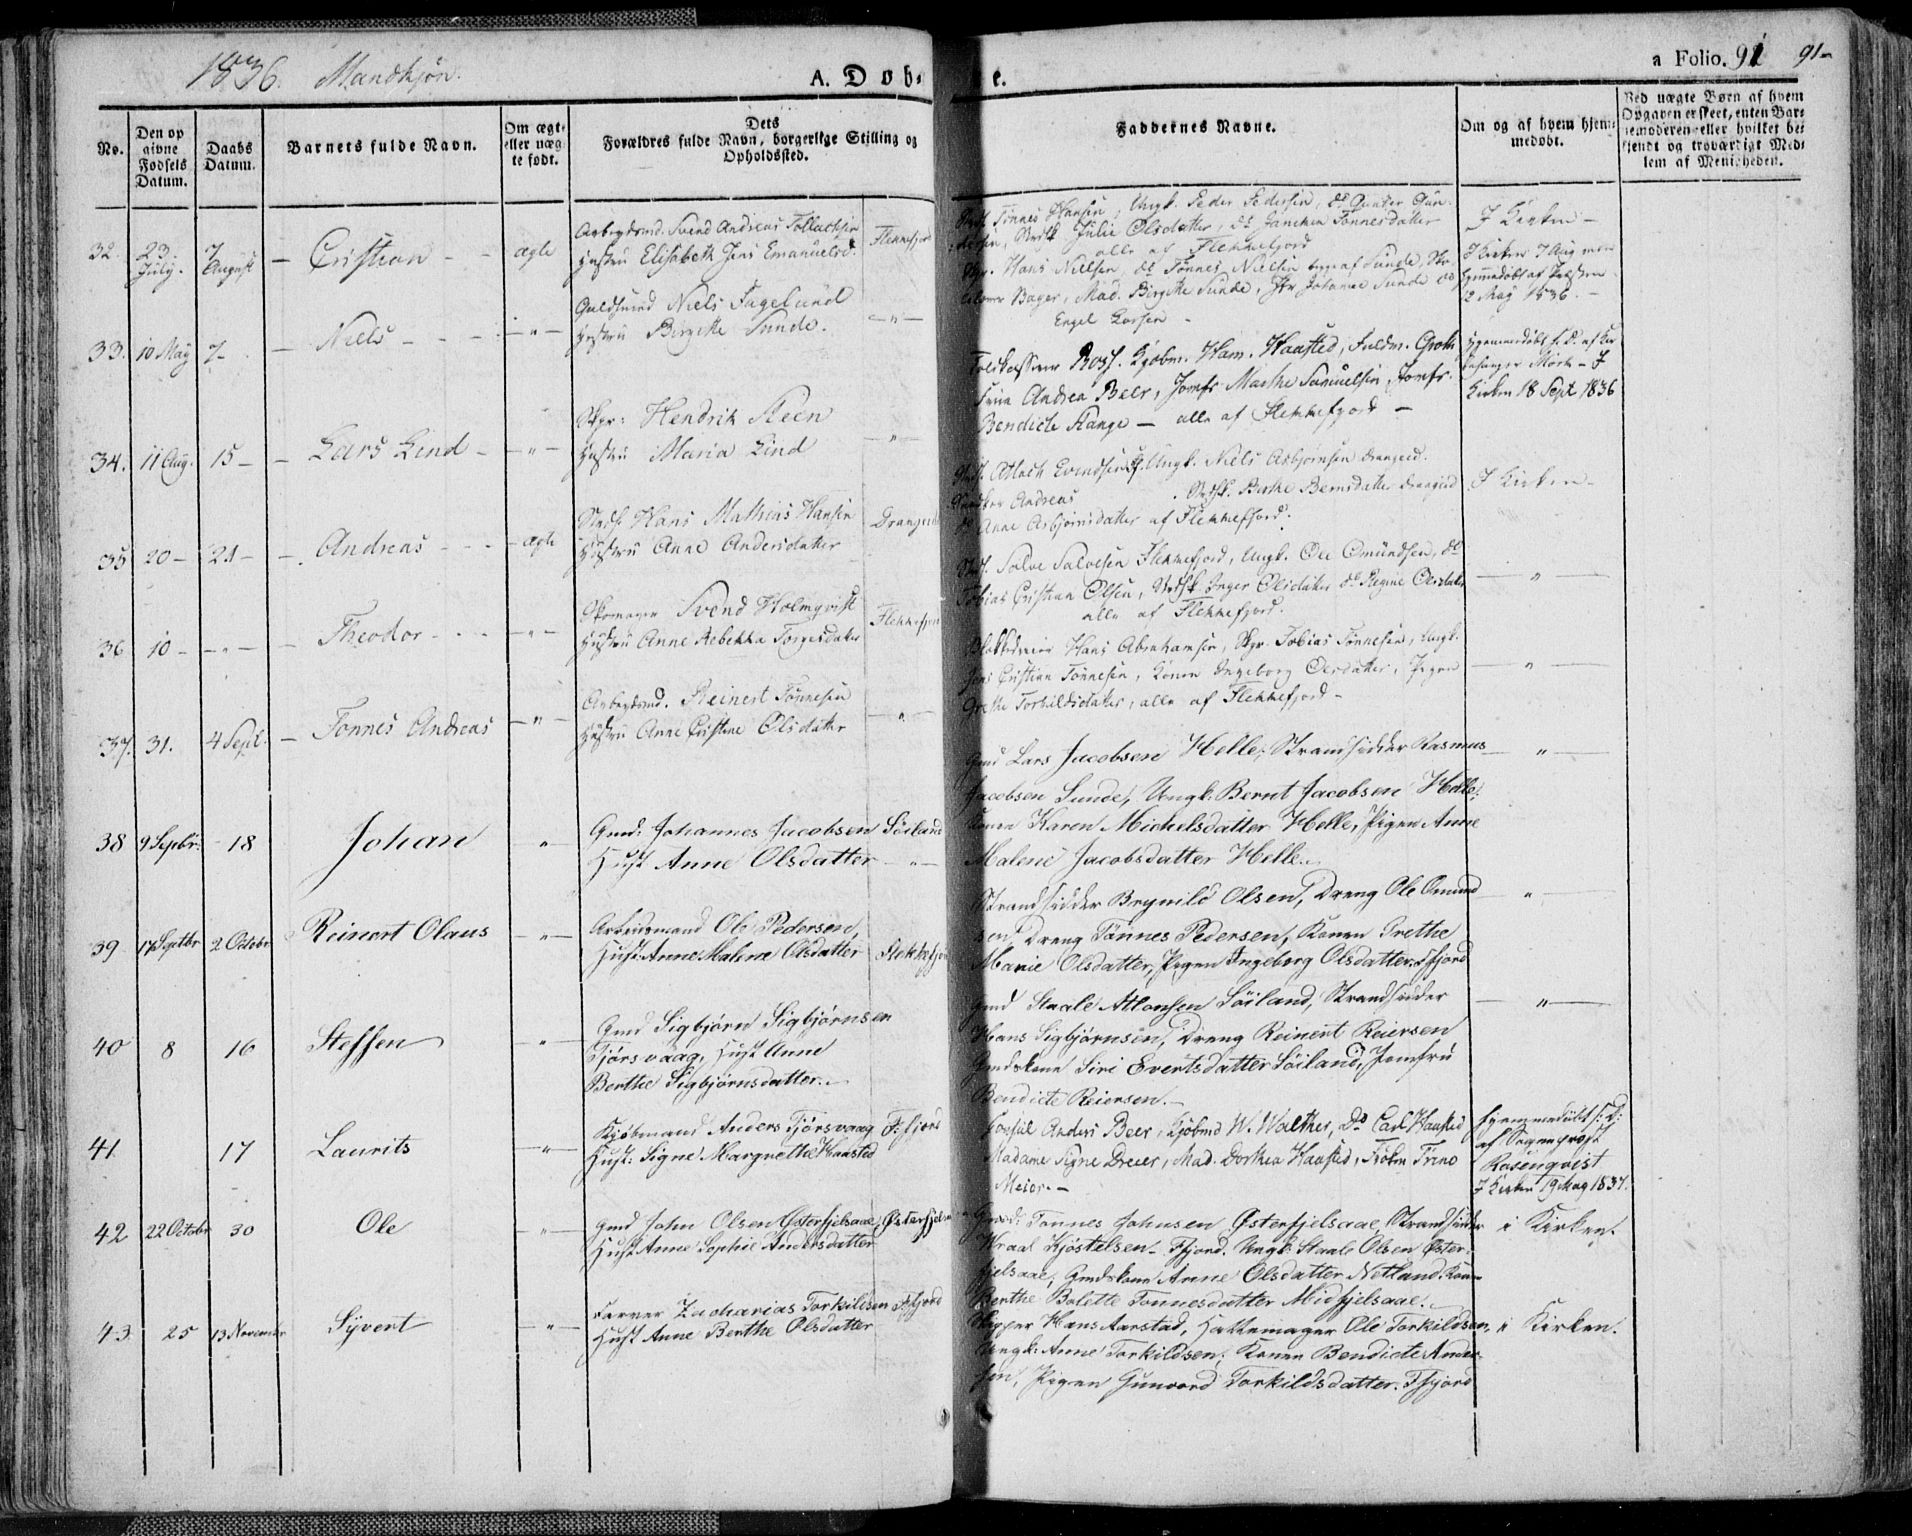 1836. Mandkjøn.
A. Døb-
e.
a Folio. 91 91-
No.
Den op
givne
Fødsels
Datum.
Daabs
Datum.
Barnets fulde Navn.
Om ægte
eller uæg-
te født.
Dets
Forældres fulde Navn, borgerlige Stilling og
Opholdssted.
Faddernes Navne.
Om og af hvem hjem-
medøbt.
Ved uægte Børn af hvem
Opgaven er skeet, enten Bar-
nemoderen eller hvilket be-
kjendt og troværdigt Med-
lem af Menigheden.
32. 23 July. 7 August – Cristian – ægte
Arbeydsmd. Svend Andreas Follachsen Flekkefjord
Hustru Elisabeth Jens Emanuelsd.
Tønnes Hansen, Ungk. Peder Pedersen, do Gunder Gun-
dersen, Julie Olsdatter, do Janeken Tønnesdatter
alle af Flekkefjord
I Kirken –
33. 10 May 7 – Niels – – " –
Guldsmed Niels Fageland – " –
Hustru Birgitte Sunde.
Skpr. Hans Nielsen, do Tønnes Nielsen begge af Sunde,
Bager, Mad. Birgitte Sunde, Jfr Johanne Sunde og
Engel Larsen –
I Kirken 7 Aug men
hjemmedøbt af Præsten
2 May 1836. –
34. 11 Aug. 15 – – Lars Lind – – " –
Skpr: Hendrik Steen – " –
Hustru Maria Lind
Toldkasserer Rosf. Kjøbm. Ham. Haasted, Fuldm. Groth
Frue Andrea Beer, Jomfr Marthe Samuelsen, Jomfr.
Bendicte Stange – alle af Flekkefjord –
Hjemmedøbt f. D. af
Mørk – I
Kirken 18 Sept 1836
35 20 – 21 – – Andreas – – – ægte
Hans Mathias Hansen Drangeid
Hustru Anne Andersdatter
Atlach Evendsen, Ungk. Niels Asbjørnsen Drangeid.
Andreas . Birthe Berntsdatter Drangeid
do Anne Asbjørnsdatter af Flekkefjord.
I Kirken –
36 10 – – " – – Theodor – – – – " –
Skomager Svend Holmqvist Flekkefjord
Hustru Anne Rebekka Torgersdatter
Salve Salvesen Flekkefjord, Ungk. Ole Omundsen, do
Tobias Cristian Olsen, Inger Olsdatter do Regine Olsdatter
alle af Flekkefjord.
– " –
37. 31. 4 Sept. – Tønnes Andreas – " –
Arbeydsmd. Reinert Tønnesen – " –
Hustru Anne Cristine Olsdatter
Hans Abrahamsen, Skpr Tobias Tønnesen, Ungk.
Jens Cristian Tønnesen, Konen Ingeborg Olsdatter, Pigen
Grethe Torkildsdatter, alle af Flekkefjord –
– " –
38 9 Septbr: 18 Johan "
Gmd: Johannes Jacobsen Søiland
Hust Anne Olsdatter – " –
Gmd Lars Jacobsen Helle, Strandsidder Rasmus
Jacobsen Sunde, Ungk: Bernt Jacobsen Helle,
Konen Karen Michelsdatter Helle, Pigen Anne
Malene Jacobsdatter Helle.
– " –
39 17 Septbr 2 Octobr Reinert Olaus – " –
Arbeidsmand Ole Pedersen,
Hust: Anne Malene Olsdatter Flekkefjord
Strandsidder Brynild Olsen, Dreng Ole Omund-
sen, Dreng Tønnes Pedersen, Konen Grethe
Marie Olsdatter, Pigen Ingeborg Olsdatter. Ffjord
"
40 8 16 Steffen – " –
Gmd Sigbjørn Sigbjørnsen
Tjørsvaag, Hust Anne
Berthe Sigbjørnsdatter. –
Gmd Staale Atlonsen Søiland, Strandsidder
Hans Sigbjørnsen, Dreng Reinert Reiersen
Gmdskone Siri Evertsdatter Søiland, Jomfru
Bendicte Reiersen. –
– " –
41. 17 Laurits – " –
Kjøbmand Anders Tjørsvaag F:fjord
Hust: Signe Margrethe Haasted
Consul Anders Beer, Kjøbmd W. Walther, Do Carl Haasted
Madame Signe Dreier, Mad. Dorthea Haasted, Trine
Meier. –
Hjemmedøbt f: D:
af Sogneprest
Rosenqvist
I Kirken 19 May 1837.
42 22 Octobr 30 Ole – " –
Gmd John Olsen Østerfjelsaae, Østerfjels
Hust Anne Sophie Andersdatter
Gmd: Tønnes Johnsen Østerfjelsaae, Strandsidder
Wraal Kjøstelsen – Ffjord. Ungk: Staale Olsen Øster-
fjelsaae, Gmdskone Anne Olsdatter Netland, Kone
Berthe Bolette Tønnesdatter Midfjelsaae.
i Kirken.
43. 25 13 November Syvert – " –
Farver Zacharias Torkildsen Ffjord
Hust Anne Berthe Olsdatter
Skipper Hans Aarstad, Hattemager Ole Torkildsen,
Ungk: Anne Torkildsen, Konen Bendicte Ander-
sen, Pigen Gunvord Torkildsdatter. Ffjord
i Kirken.